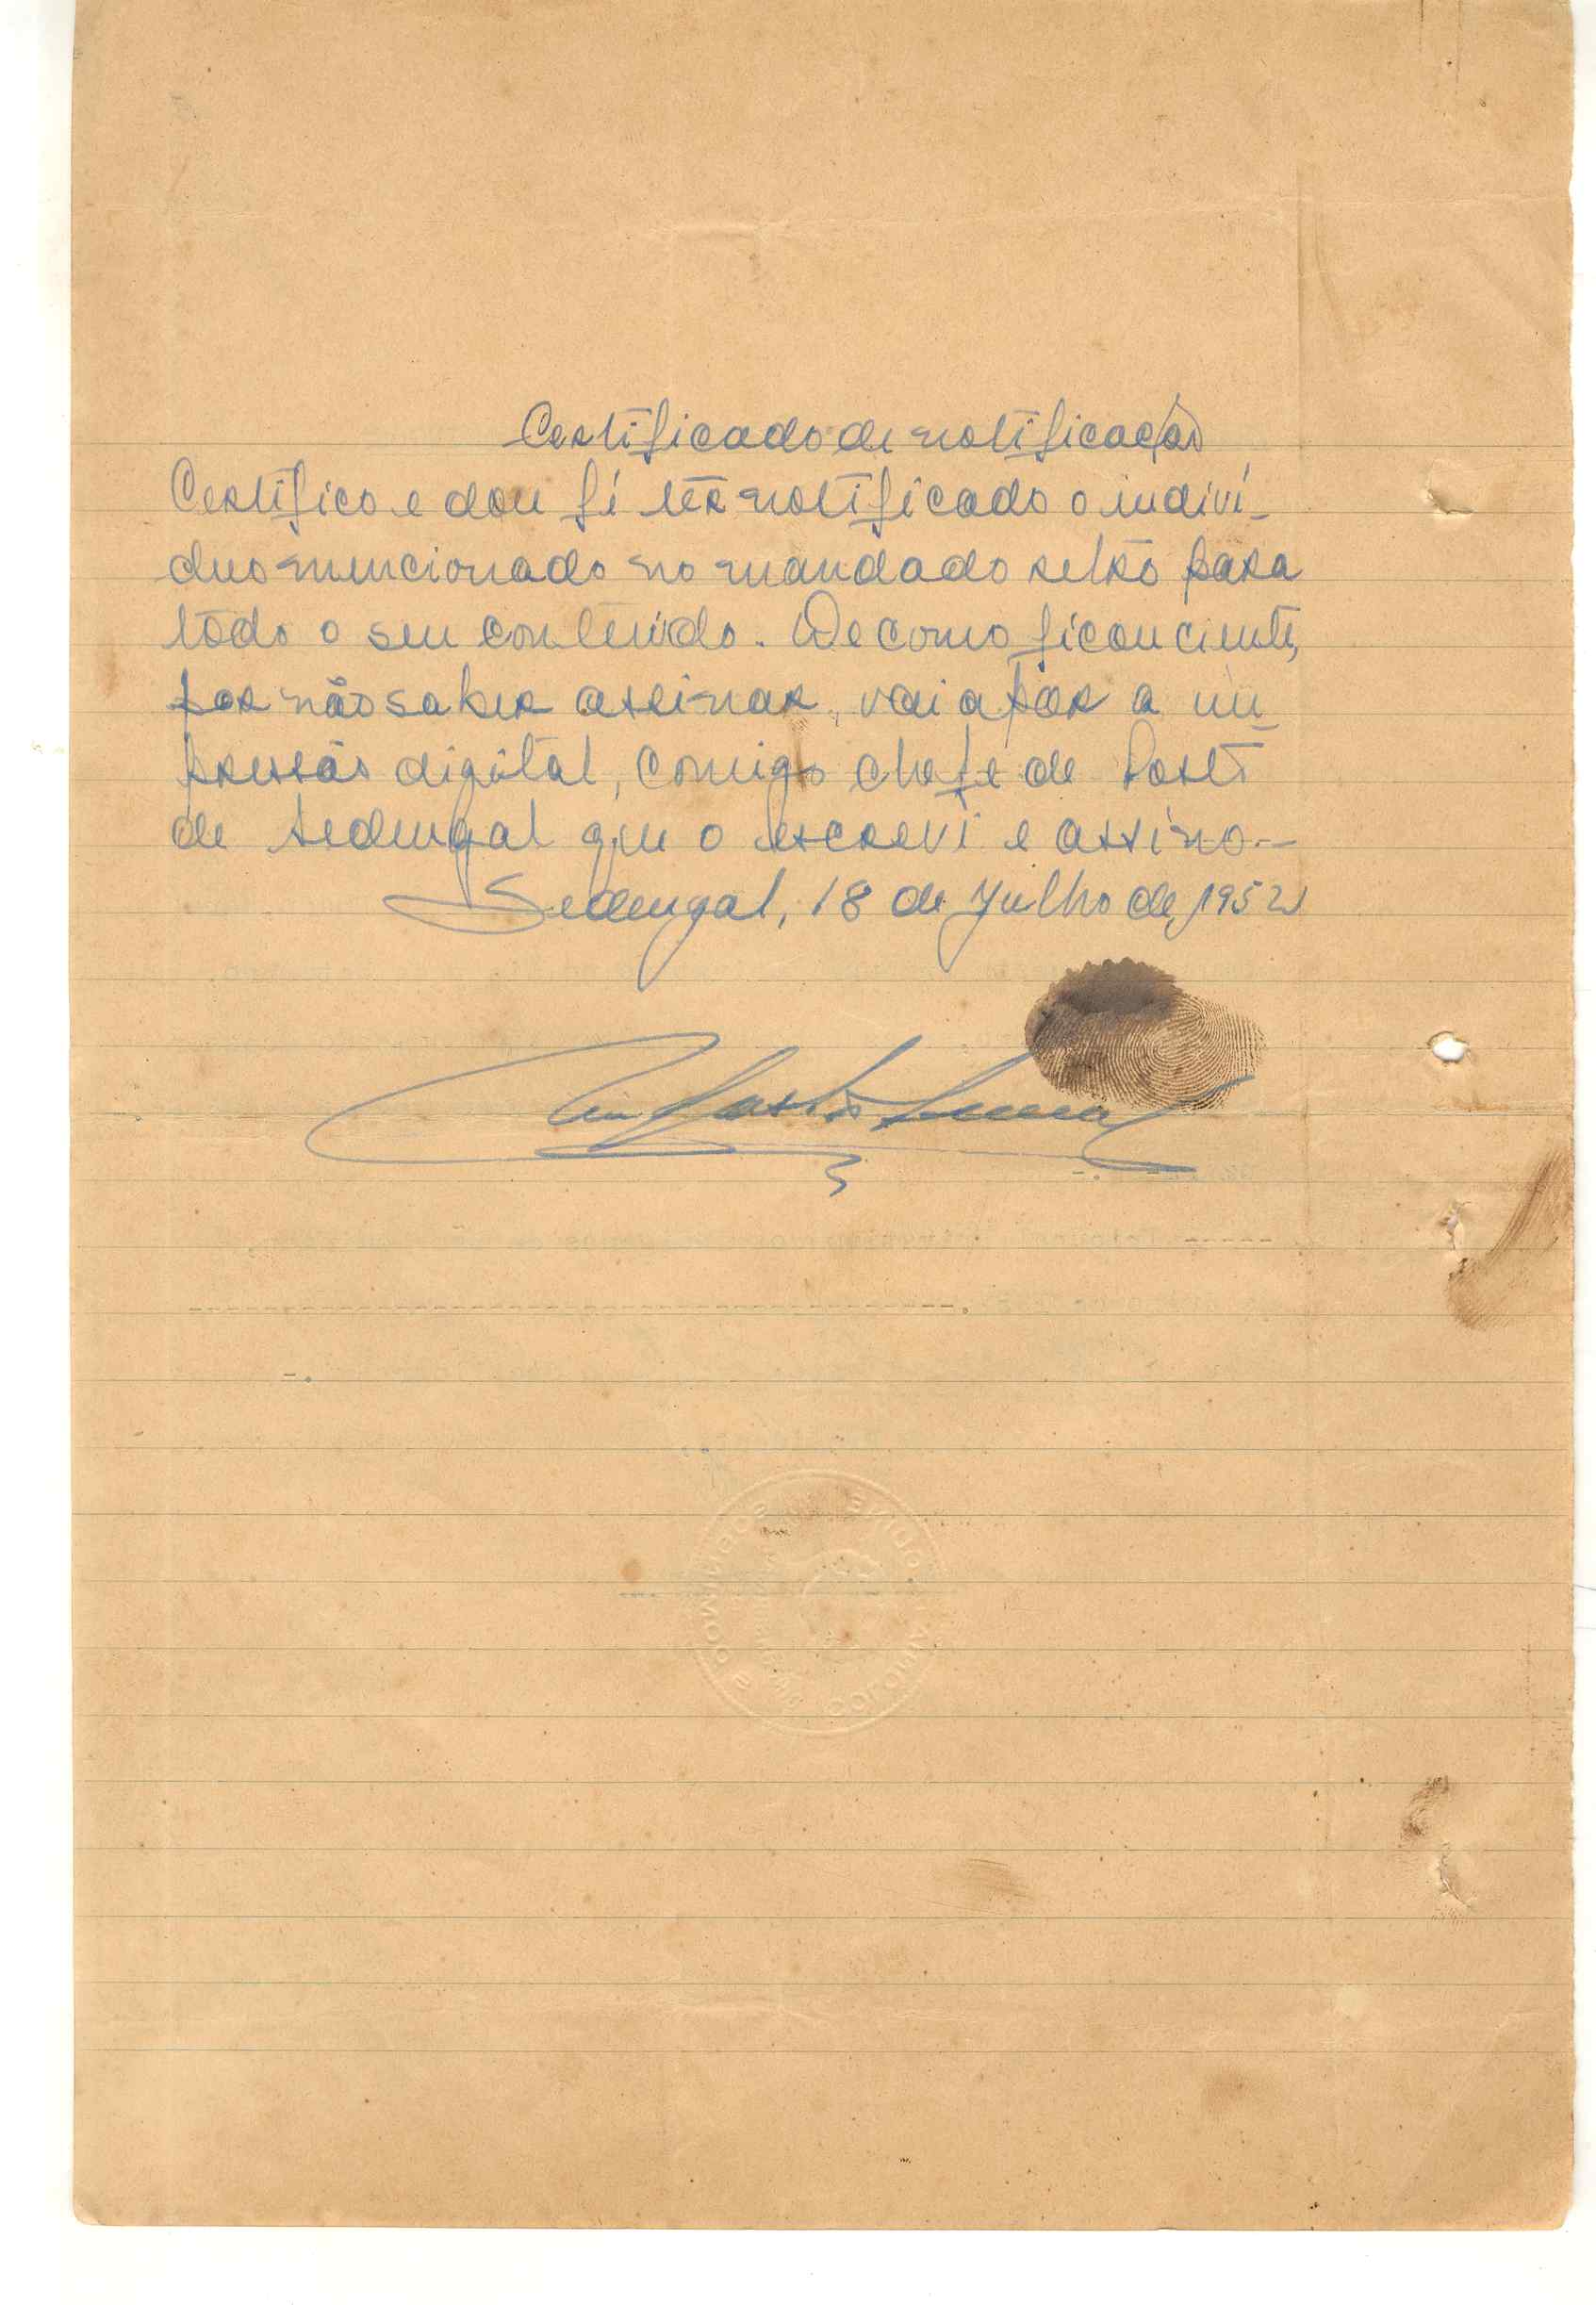 Certificado de notificação
Certifico e dou fé têr notificado o indiví-
duo mencionado no mandado retro para
todo o seu conteúdo. De como ficou ciente,
por não saber assinar, vai apôr a im-
pressão digital, comigo chefe de Posto
de Sedengal que o escrevi e assino.-
Sedengal, 18 de Julho de, 1952